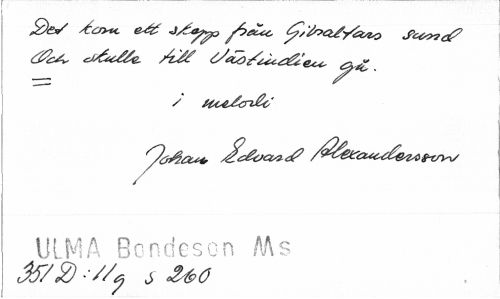 Det kom ett skepp från Gibraltars sund
Och skulle till Västindien gå.
1 melodi
Johan Edvard Alexandersson
ULMA Bondeson Ms
351 D:11q s 260